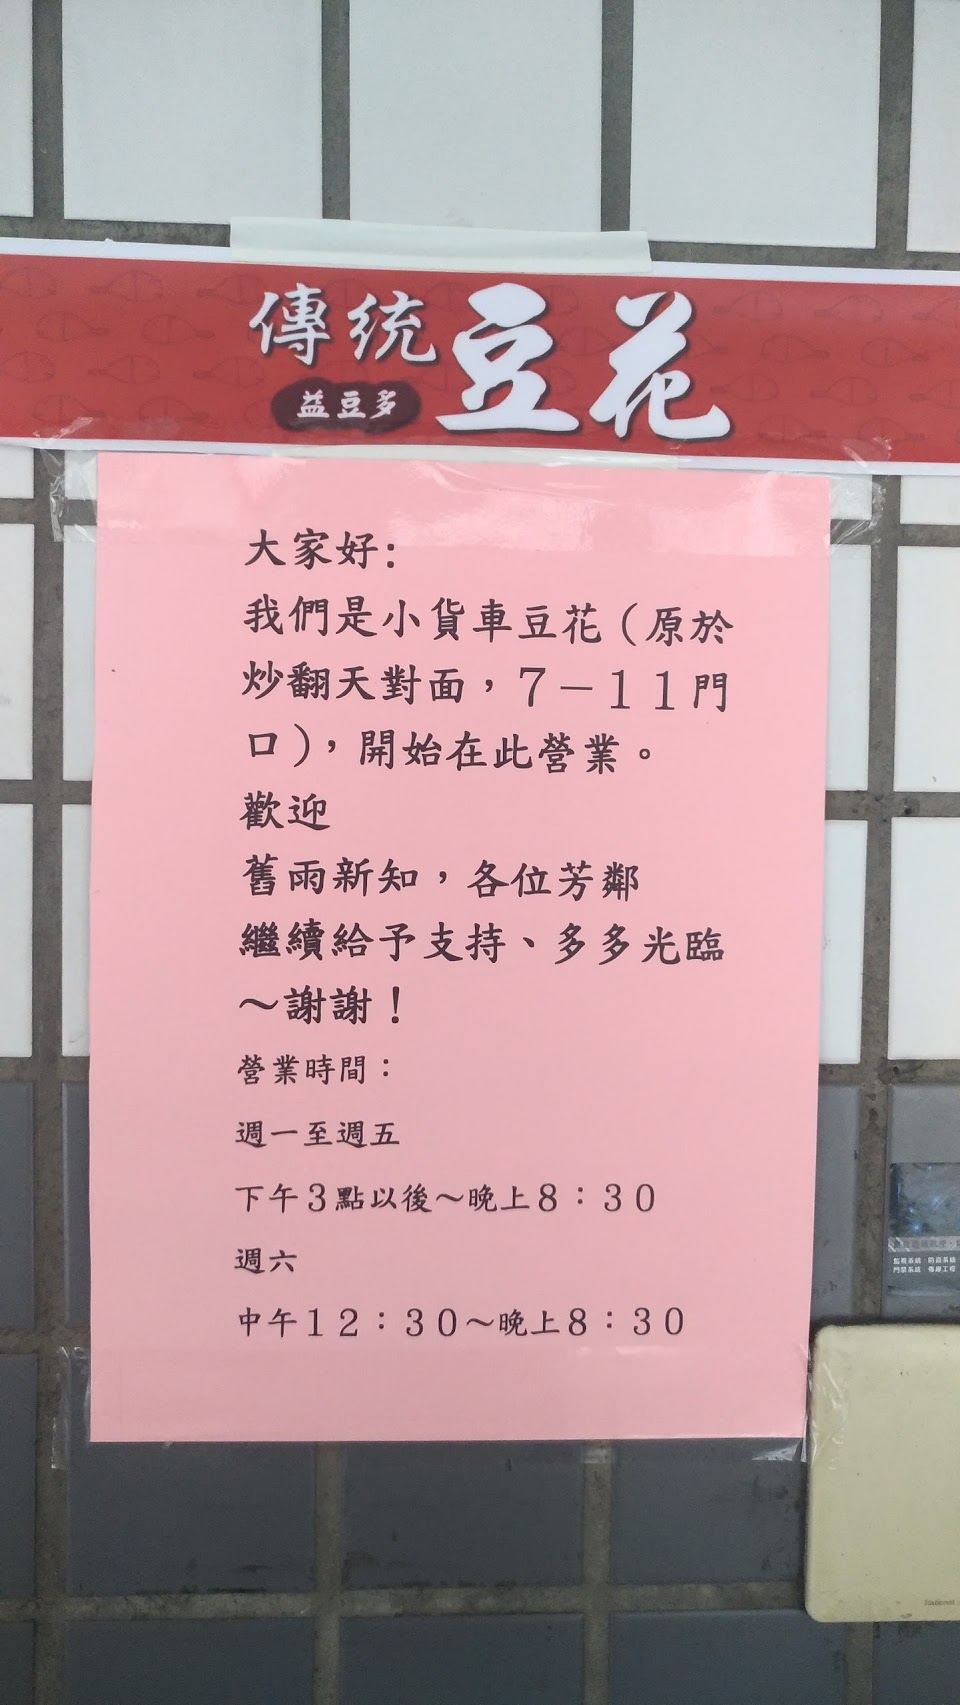 傳統豆花
益豆多
大家好:
我們是小貨車豆花（原於
炒翻天對面，７－１１門
口），開始在此營業。
歡迎
舊雨新知，各位芳鄰
繼續給予支持、多多光臨
～謝謝！
營業時間：
週一至週五
下午３點以後～晚上８：３０
週六
中午１２：３０～晚上８：３０
監視系統
門禁系統
National